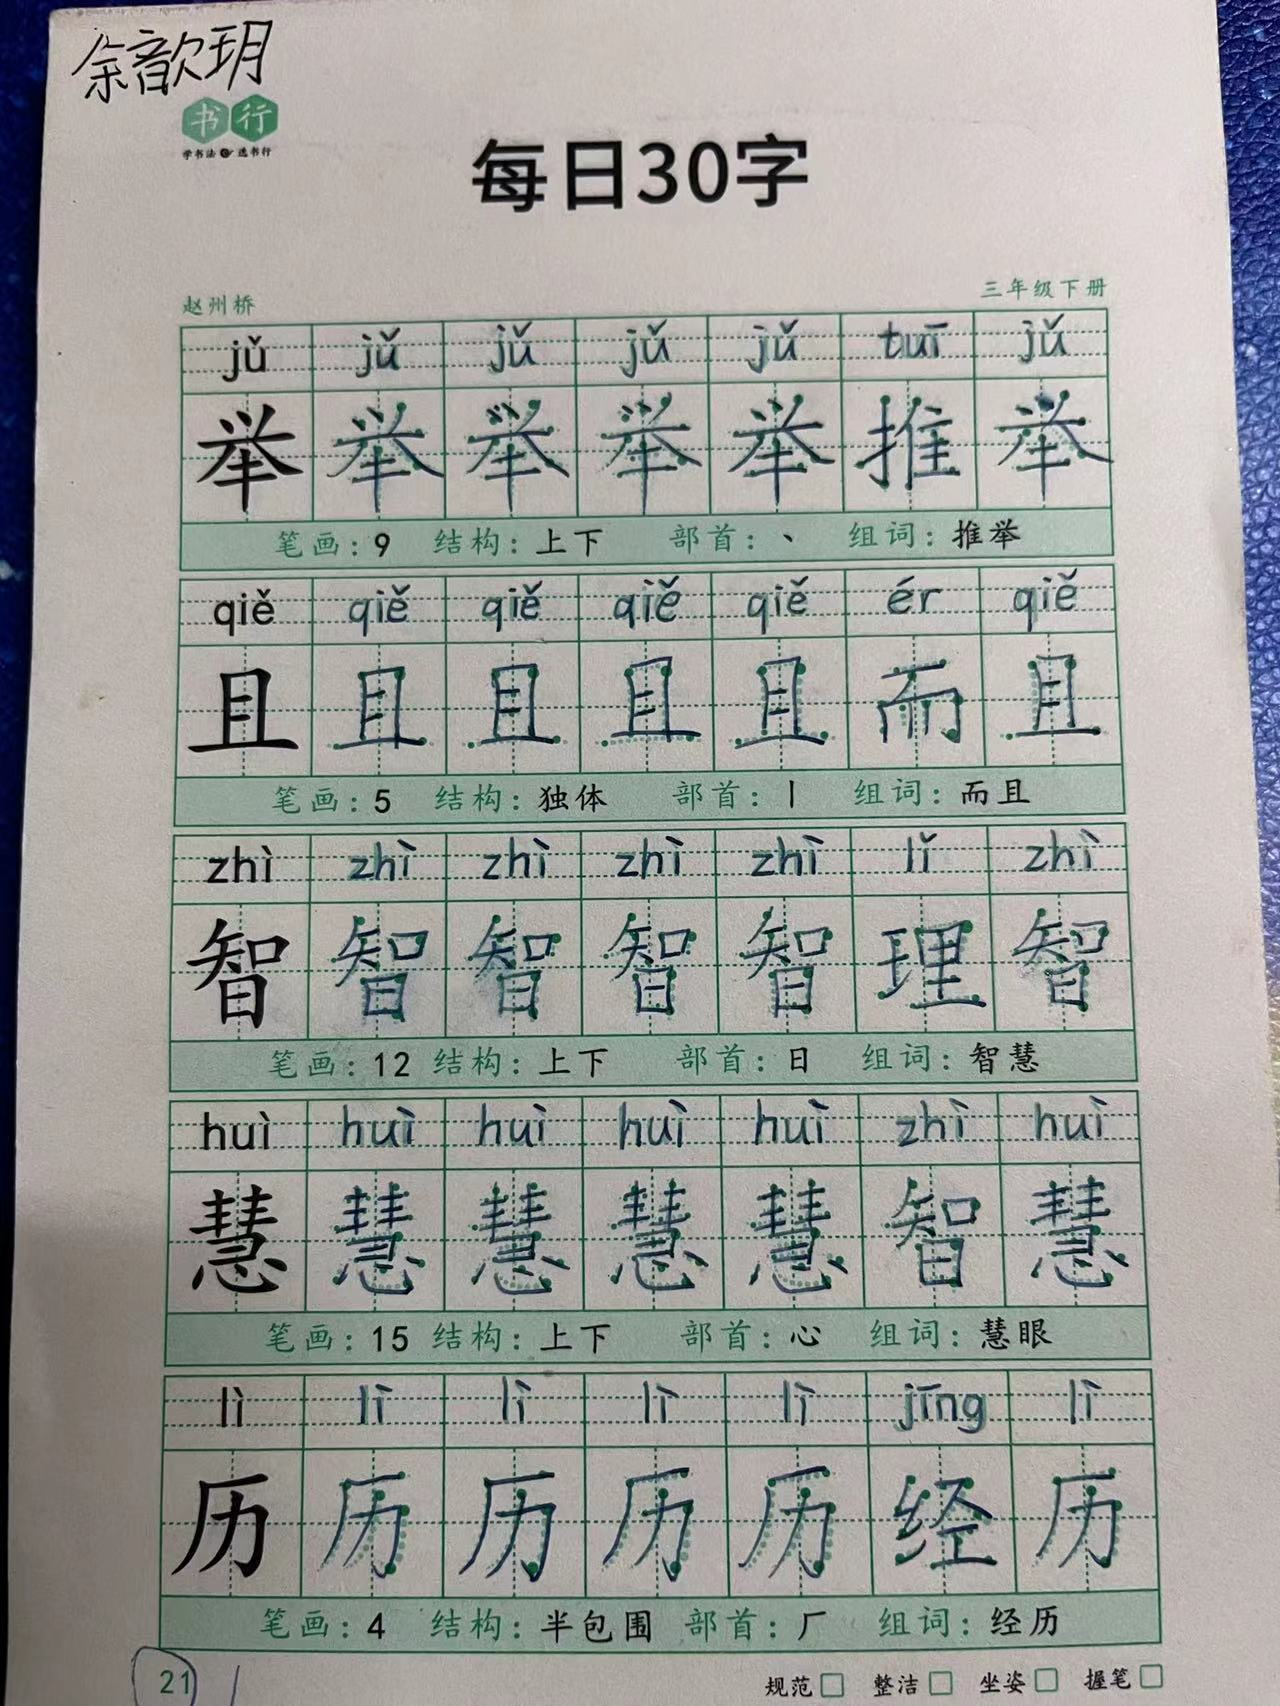 余歆玥
书行
学书法 选书行
每日30字
赵州桥 三年级下册
jǔ jǔ jǔ jǔ jǔ tuī jǔ
举 举 举 举 举 推 举
笔画:9 结构:上下 部首:丶 组词:推举
qiě qiě qiě qiě qiě ér qiě
且 且 且 且 且 而 且
笔画:5 结构:独体 部首:丨 组词:而且
zhì zhì zhì zhì zhì lǐ zhì
智 智 智 智 智 理 智
笔画:12 结构:上下 部首:日 组词:智慧
huì huì huì huì huì zhì huì
慧 慧 慧 慧 慧 智 慧
笔画:15 结构:上下 部首:心 组词:慧眼
lì lì lì lì lì jīng lì
历 历 历 历 历 经 历
笔画:4 结构:半包围 部首:厂 组词:经历
21 规范□ 整洁□ 坐姿□ 握笔□